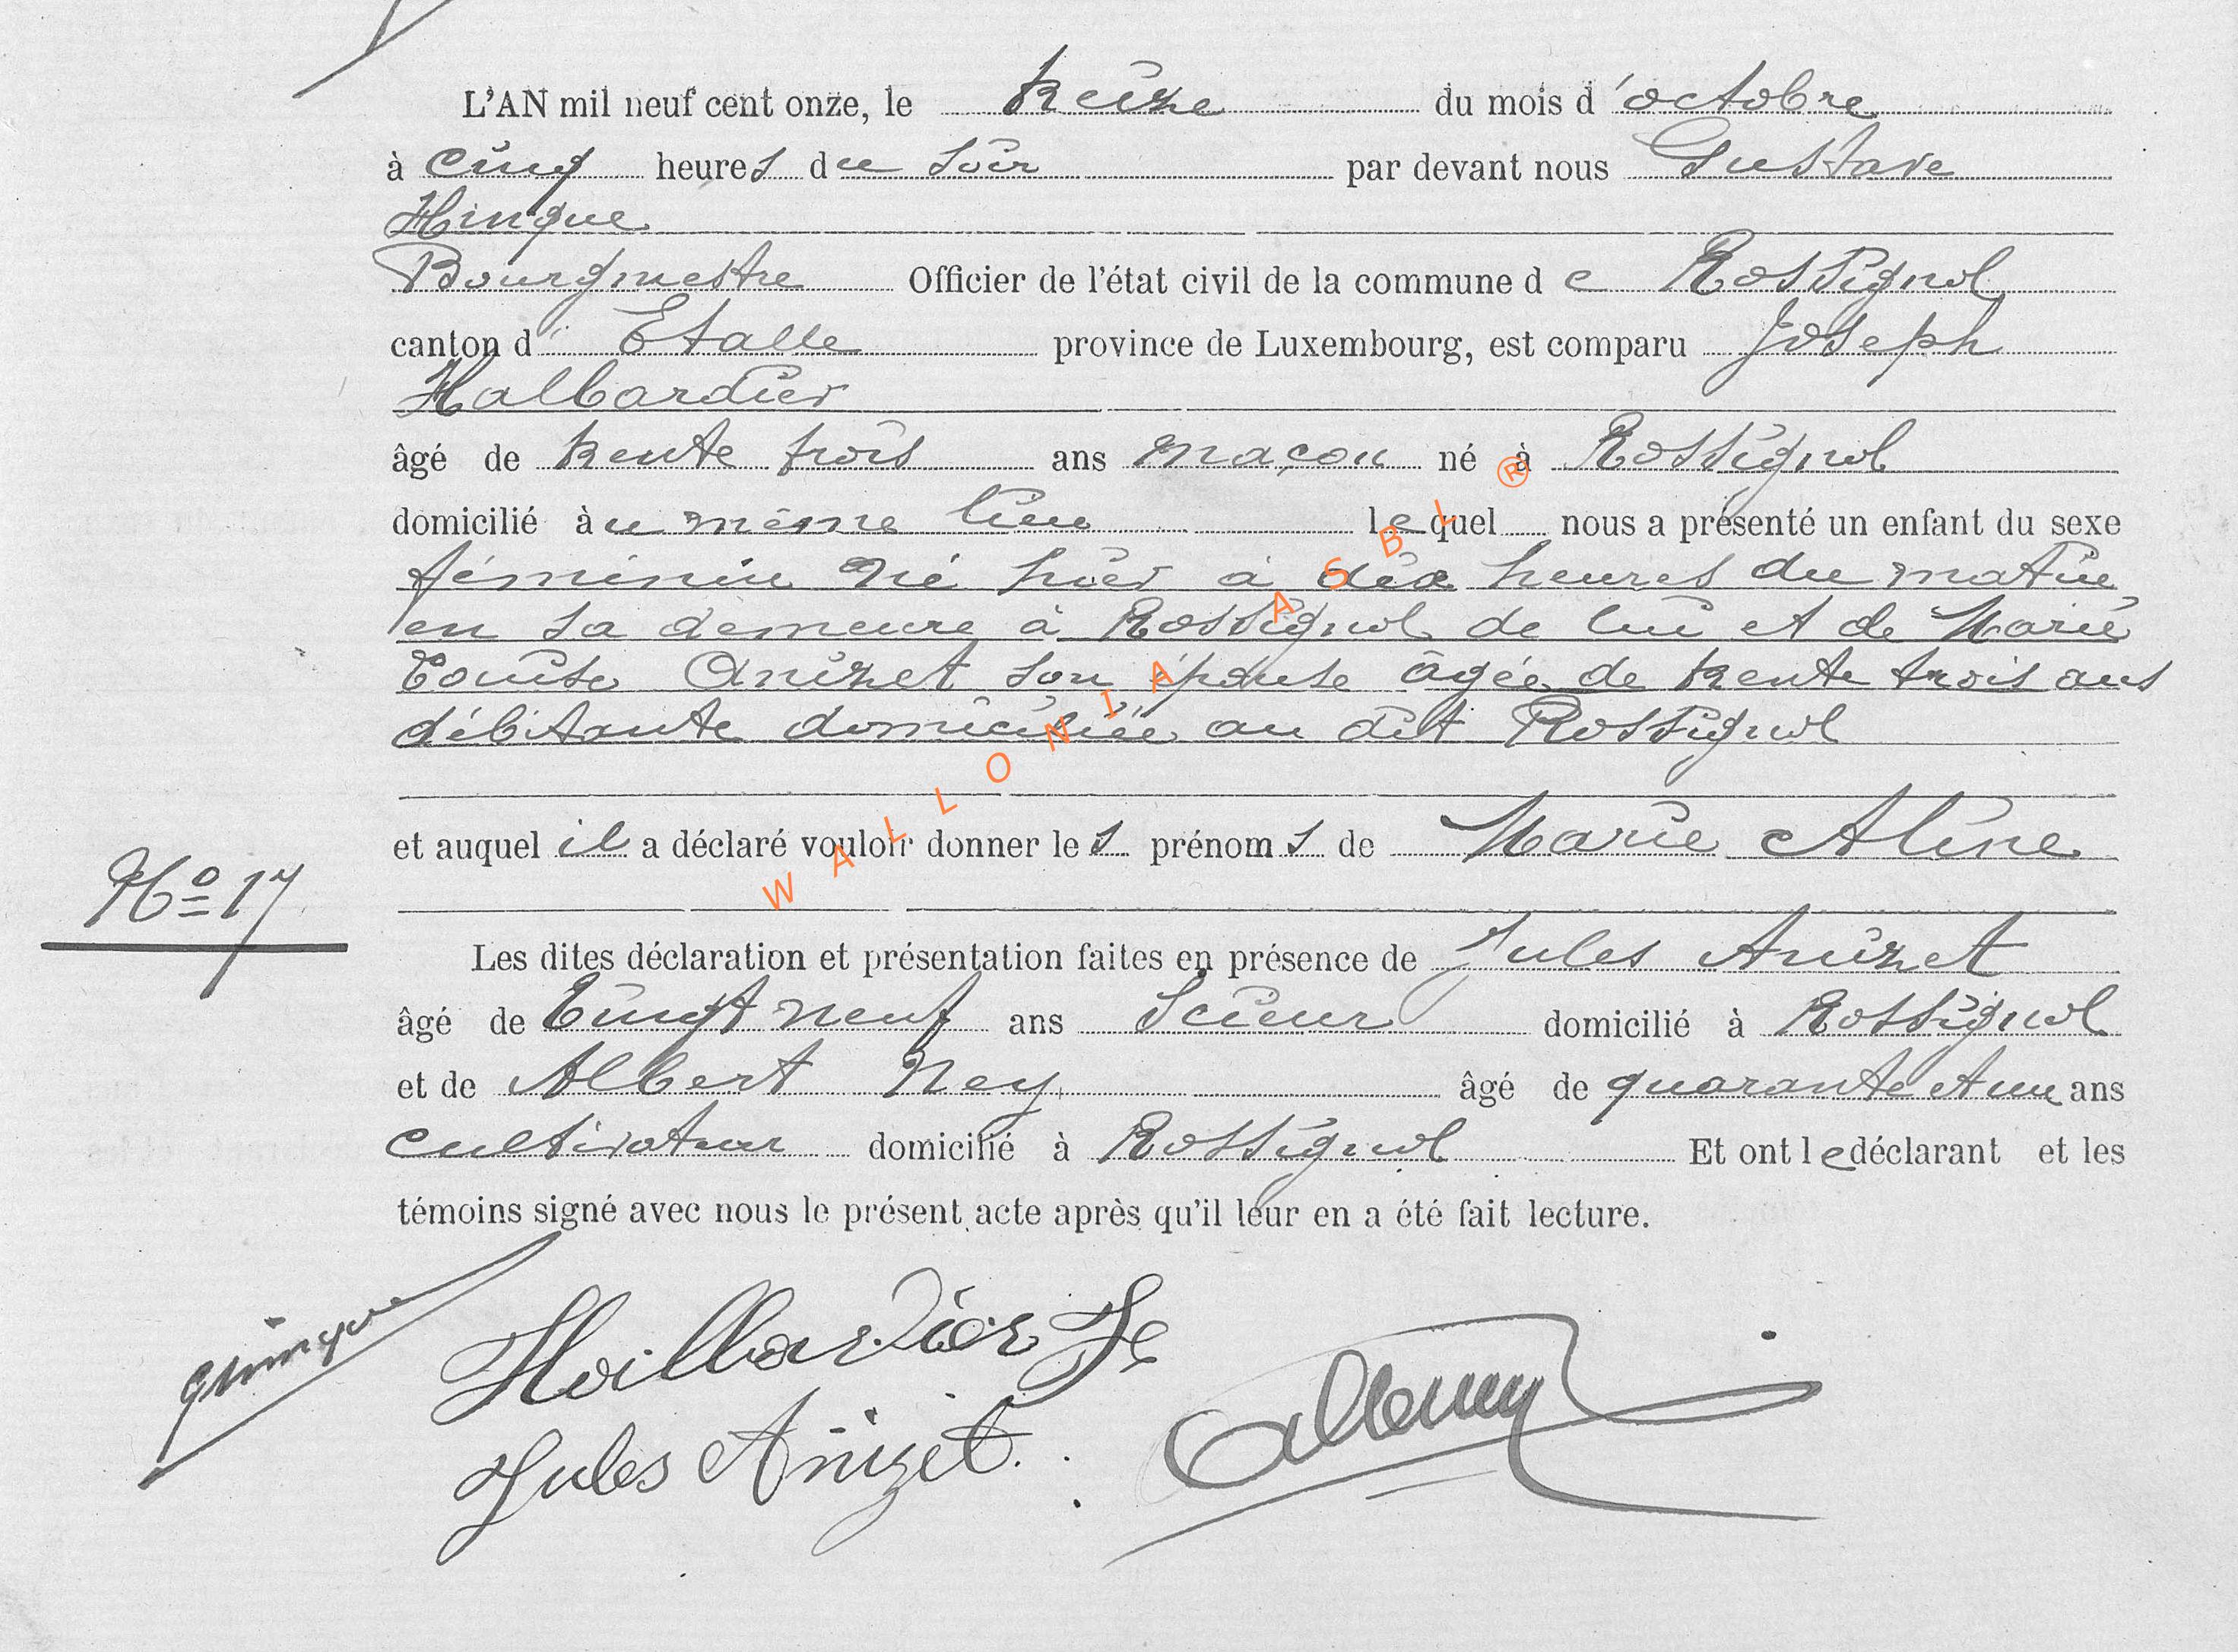 L'AN mil neuf cent onze, le treize du mois d'octobre
à cinq heures du soir par devant nous Gustave
Hinque
Bourgmestre Officier de l'état civil de la commune de Rossignol
canton d'Etalle province de Luxembourg, est comparu Joseph
Halbardier
âgé de trente trois ans maçon né à Rossignol
domicilié àu même lieu lequel nous a présenté un enfant du sexe
féminin né hier à dix heures du matin
en sa demeure à Rossignol de lui et de Marie
Louise Anizet son épouse âgée de trente trois ans
débitante domiciliée au dit Rossignol
et auquel il a déclaré vouloir donner les prénoms de Marie Aline
No 17
Les dites déclaration et présentation faites en présence de Jules Anizet
âgé de vingt neuf ans Scieur domicilié à Rossignol
et de Albert Ney âgé de quarante et un ans
cultivateur domicilié à Rossignol Et ont le déclarant et les
témoins signé avec nous le présent acte après qu'il leur en a été fait lecture.
Jules Anizet
WALLONIA ASBL ®